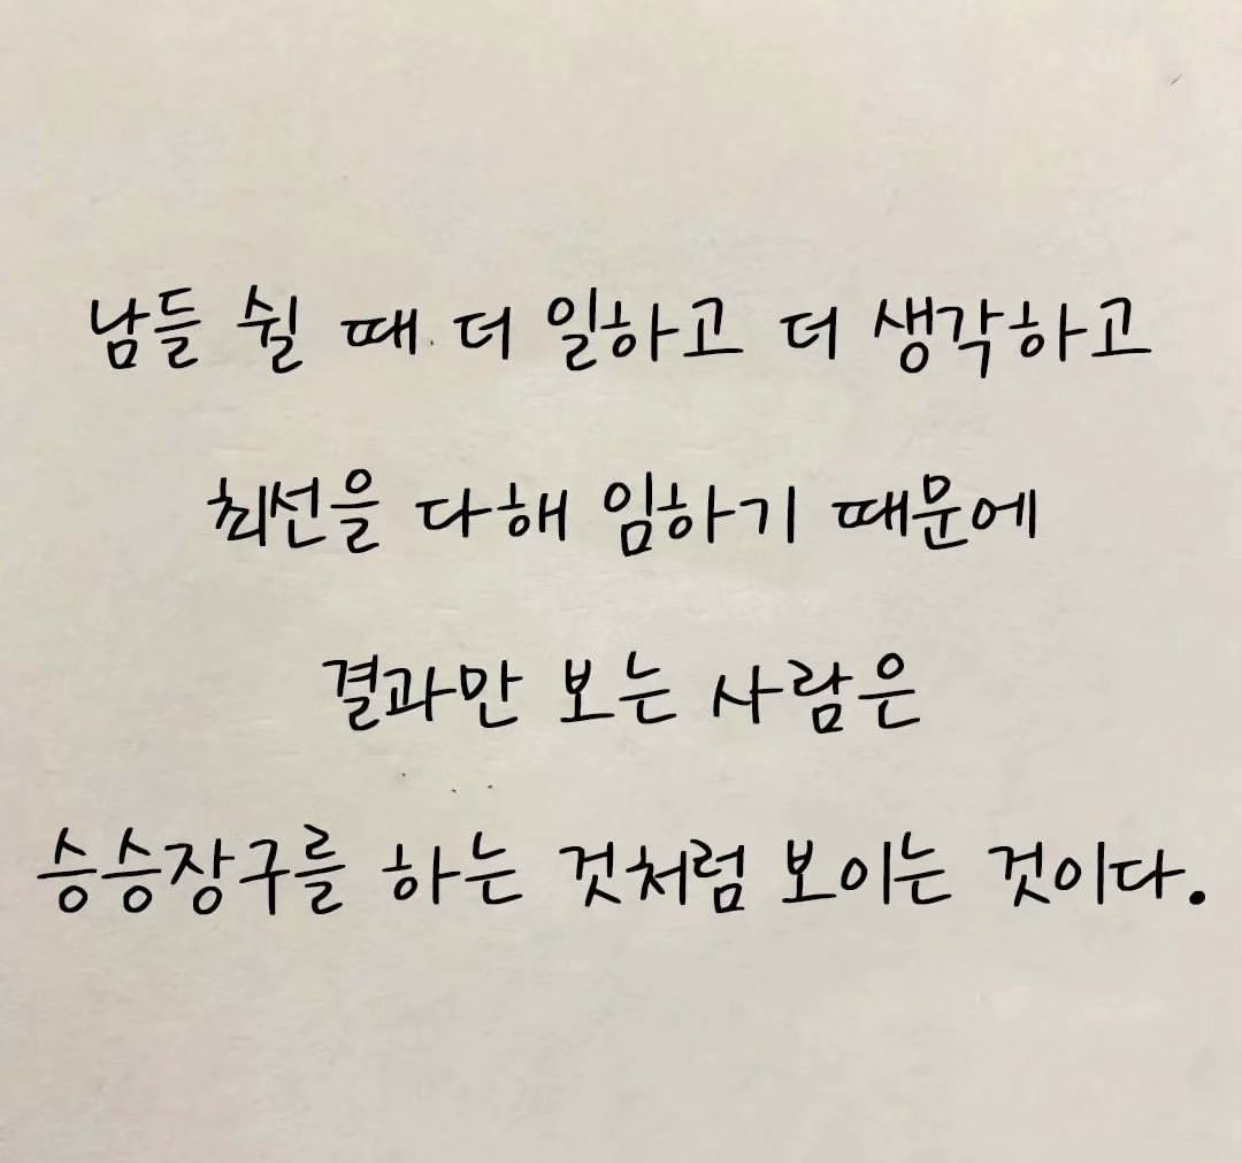 남들 쉴 때 더 일하고 더 생각하고
최선을 다해 임하기 때문에
결과만 보는 사람은
승승장구를 하는 것처럼 보이는 것이다.